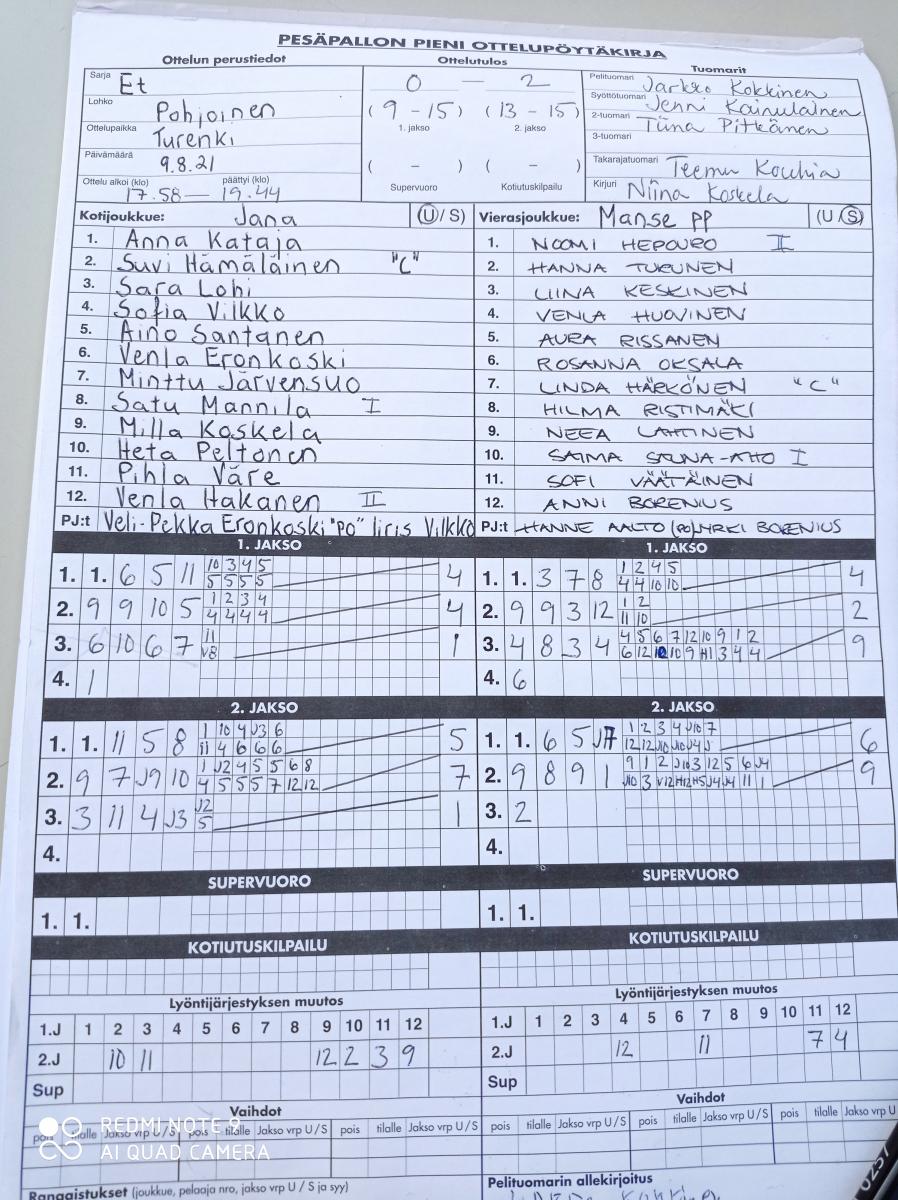 PESÄPALLON PIENI OTTELUPÖYTÄKIRJA
Ottelun perustiedot Ottelutulos Tuomarit
Sarja Et
Lohko Pohjoinen
Ottelupaikka Turenki
Päivämäärä 9.8.21
Ottelu alkoi (klo) päättyi (klo)
17.58 — 19.44
0 — 2
(9 - 15) (13 - 15)
1. jakso 2. jakso
( - ) ( - )
Supervuoro Kotiutuskilpailu
Pelituomari Jarkko Kokkinen
Syöttötuomari Jenni Kainulainen
2-tuomari Tiina Pitkänen
3-tuomari
Takarajatuomari Teemu Kouhia
Kirjuri Niina Koskela
Kotijoukkue: Jana (U/S)
1. Anna Kataja
2. Suvi Hämäläinen "C"
3. Sara Lohi
4. Sofia Vilkko
5. Aino Santanen
6. Venla Eronkoski
7. Minttu Järvensuo
8. Satu Mannila I
9. Milla Koskela
10. Heta Peltonen
11. Pihla Väre
12. Venla Hakanen II
PJ:t Veli-Pekka Eronkoski "PO" Iiris Vilkko
Vierasjoukkue: Manse PP (U/S)
1. NOOMI HEPOURO II
2. HANNA TURUNEN
3. LIINA KESKINEN
4. VENLA HUOVINEN
5. AURA RISSANEN
6. ROSANNA OKSALA
7. LINDA HÄRKÖNEN "C"
8. HILMA RISTIMÄKI
9. NEEA LAHTINEN
10. SAIMA SAUNA-AHO I
11. SOFI VÄÄTÄINEN
12. ANNI BORENIUS
PJ:t HANNE AALTO (PO) JYRKI BORENIUS
1. JAKSO
10 3 4 5
1. 1. 6 5 11 5 5 5 5 4
1 2 3 4
2. 9 9 10 5 4 4 4 4 4
11
3. 6 10 6 7 V8 1
4. 1
1. JAKSO
1 2 4 5
1. 1. 3 7 8 4 4 10 10 4
1 2
2. 9 9 3 12 11 10 2
4 5 6 7 12 10 9 1 2
3. 4 8 3 4 6 12 10 9 H1 3 4 4 9
4. 6
2. JAKSO
1 10 4 J3 6
1. 1. 11 5 8 11 4 6 6 6 5
1 J2 4 5 5 6 8
2. 9 7 J9 10 4 5 5 5 7 12 12 7
J2
3. 3 11 4 J3 5 1
4.
2. JAKSO
1 2 3 4 J10 7
1. 1. 6 5 12 12 J10 J10 J4 6
9 1 2 J10 3 12 5 6 J4
2. 9 8 9 1 J10 3 V12 H12 H5 J4 J4 11 1 9
3. 2
4.
SUPERVUORO
1. 1.
SUPERVUORO
1. 1.
KOTIUTUSKILPAILU
KOTIUTUSKILPAILU
Lyöntijärjestyksen muutos
1.J 1 2 3 4 5 6 7 8 9 10 11 12
2.J 10 11 12 2 3 9
Sup
Lyöntijärjestyksen muutos
1.J 1 2 3 4 5 6 7 8 9 10 11 12
2.J 12 11 7 4
Sup
Vaihdot
pois tilalle Jakso vrp U/S pois tilalle Jakso vrp U/S pois tilalle Jakso vrp U/S
Vaihdot
pois tilalle Jakso vrp U/S pois tilalle Jakso vrp U/S pois tilalle Jakso vrp U
REDMI NOTE 9
AI QUAD CAMERA
Rangaistukset (joukkue, pelaaja nro, jakso vrp U / S ja syy)
Pelituomarin allekirjoitus